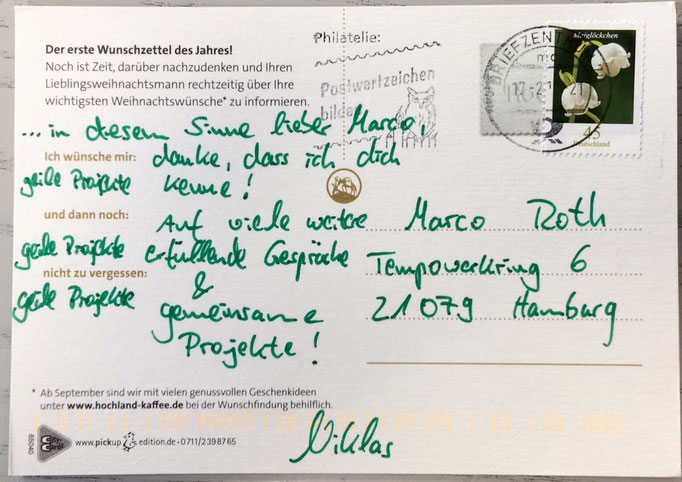 Der erste Wunschzettel des Jahres!
Noch ist Zeit, darüber nachzudenken und Ihren
Lieblingsweihnachtsmann rechtzeitig über Ihre
wichtigsten Weihnachtswünsche* zu informieren.
... in diesem Sinne lieber Marco,
Ich wünsche mir: danke, dass ich dich
geile Projekte kenne!
und dann noch: Auf viele weitere
geile Projekte erfüllende Gespräche
nicht zu vergessen: &
geile Projekte gemeinsame
Projekte!
* Ab September sind wir mit vielen genussvollen Geschenkideen
unter www.hochland-kaffee.de bei der Wunschfindung behilflich.
Niklas
65040
www.pickup edition.de • 0711/2398765
Philatelie:
Postwertzeichen
BRIEFZENT
Maiglöckchen
45
Deutschland
Marco Roth
Tempowerkring 6
21079 Hamburg